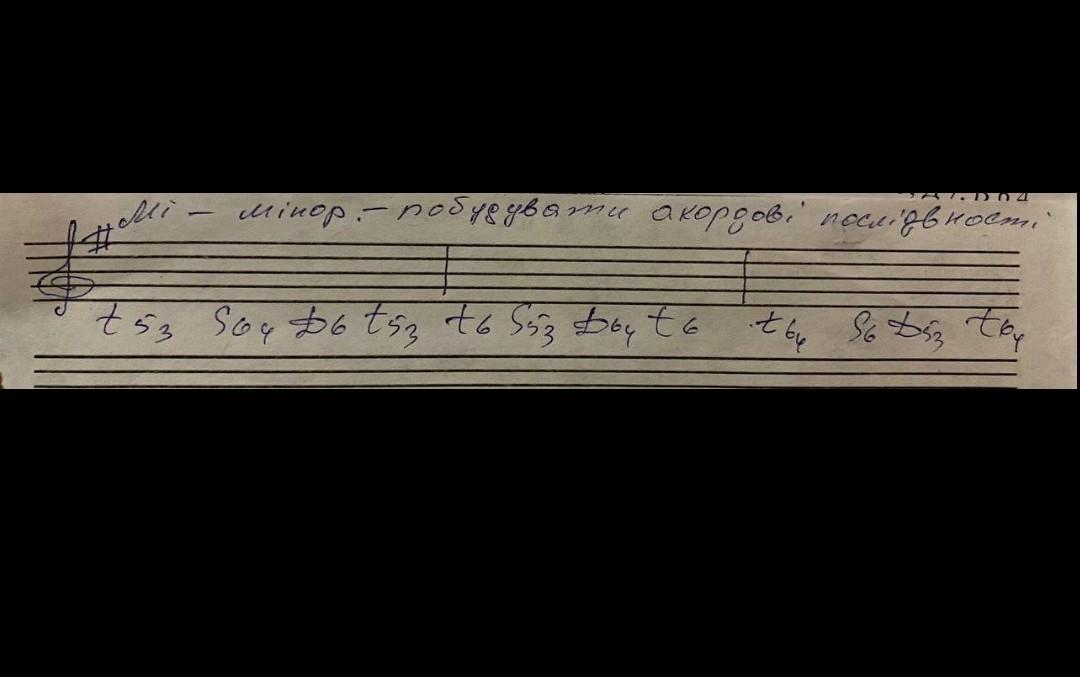 Мі – мінор. – побудувати акордові послідвності
t 5 3 S6 4 D6 t5 3 t6 S5 3 D6 4 t6 t6 4 S6 D5 3 t6 4